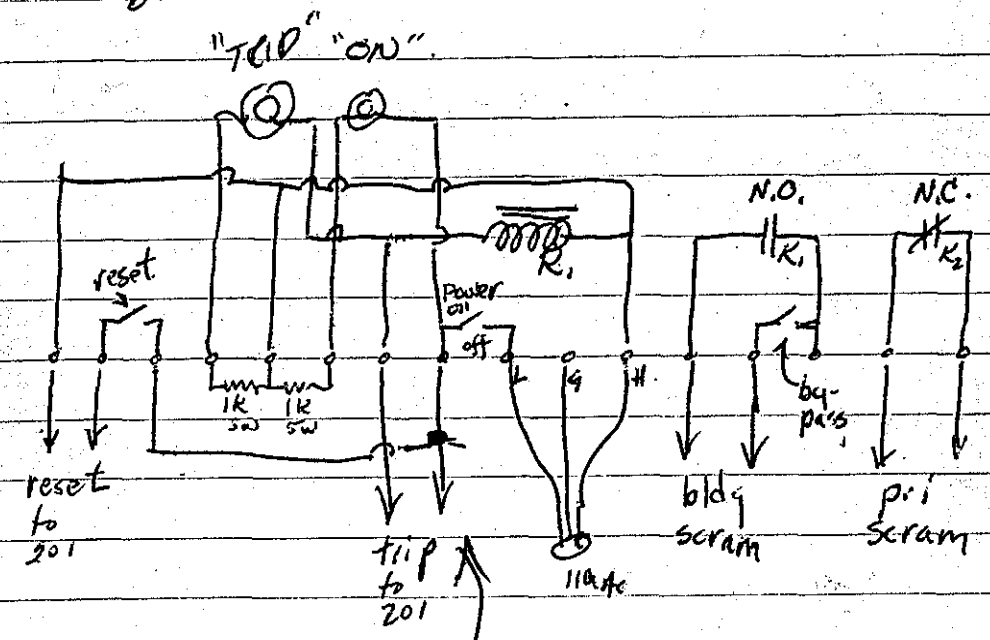 "TRIP" "ON"
N.O.
N.C.
R₁
K₁
K₂
reset
Power
on
off
1K
5W
1K
5W
L
G
H
by-
pass
reset
to
201
trip
to
201
110 Ac
bldg
scram
pri
scram